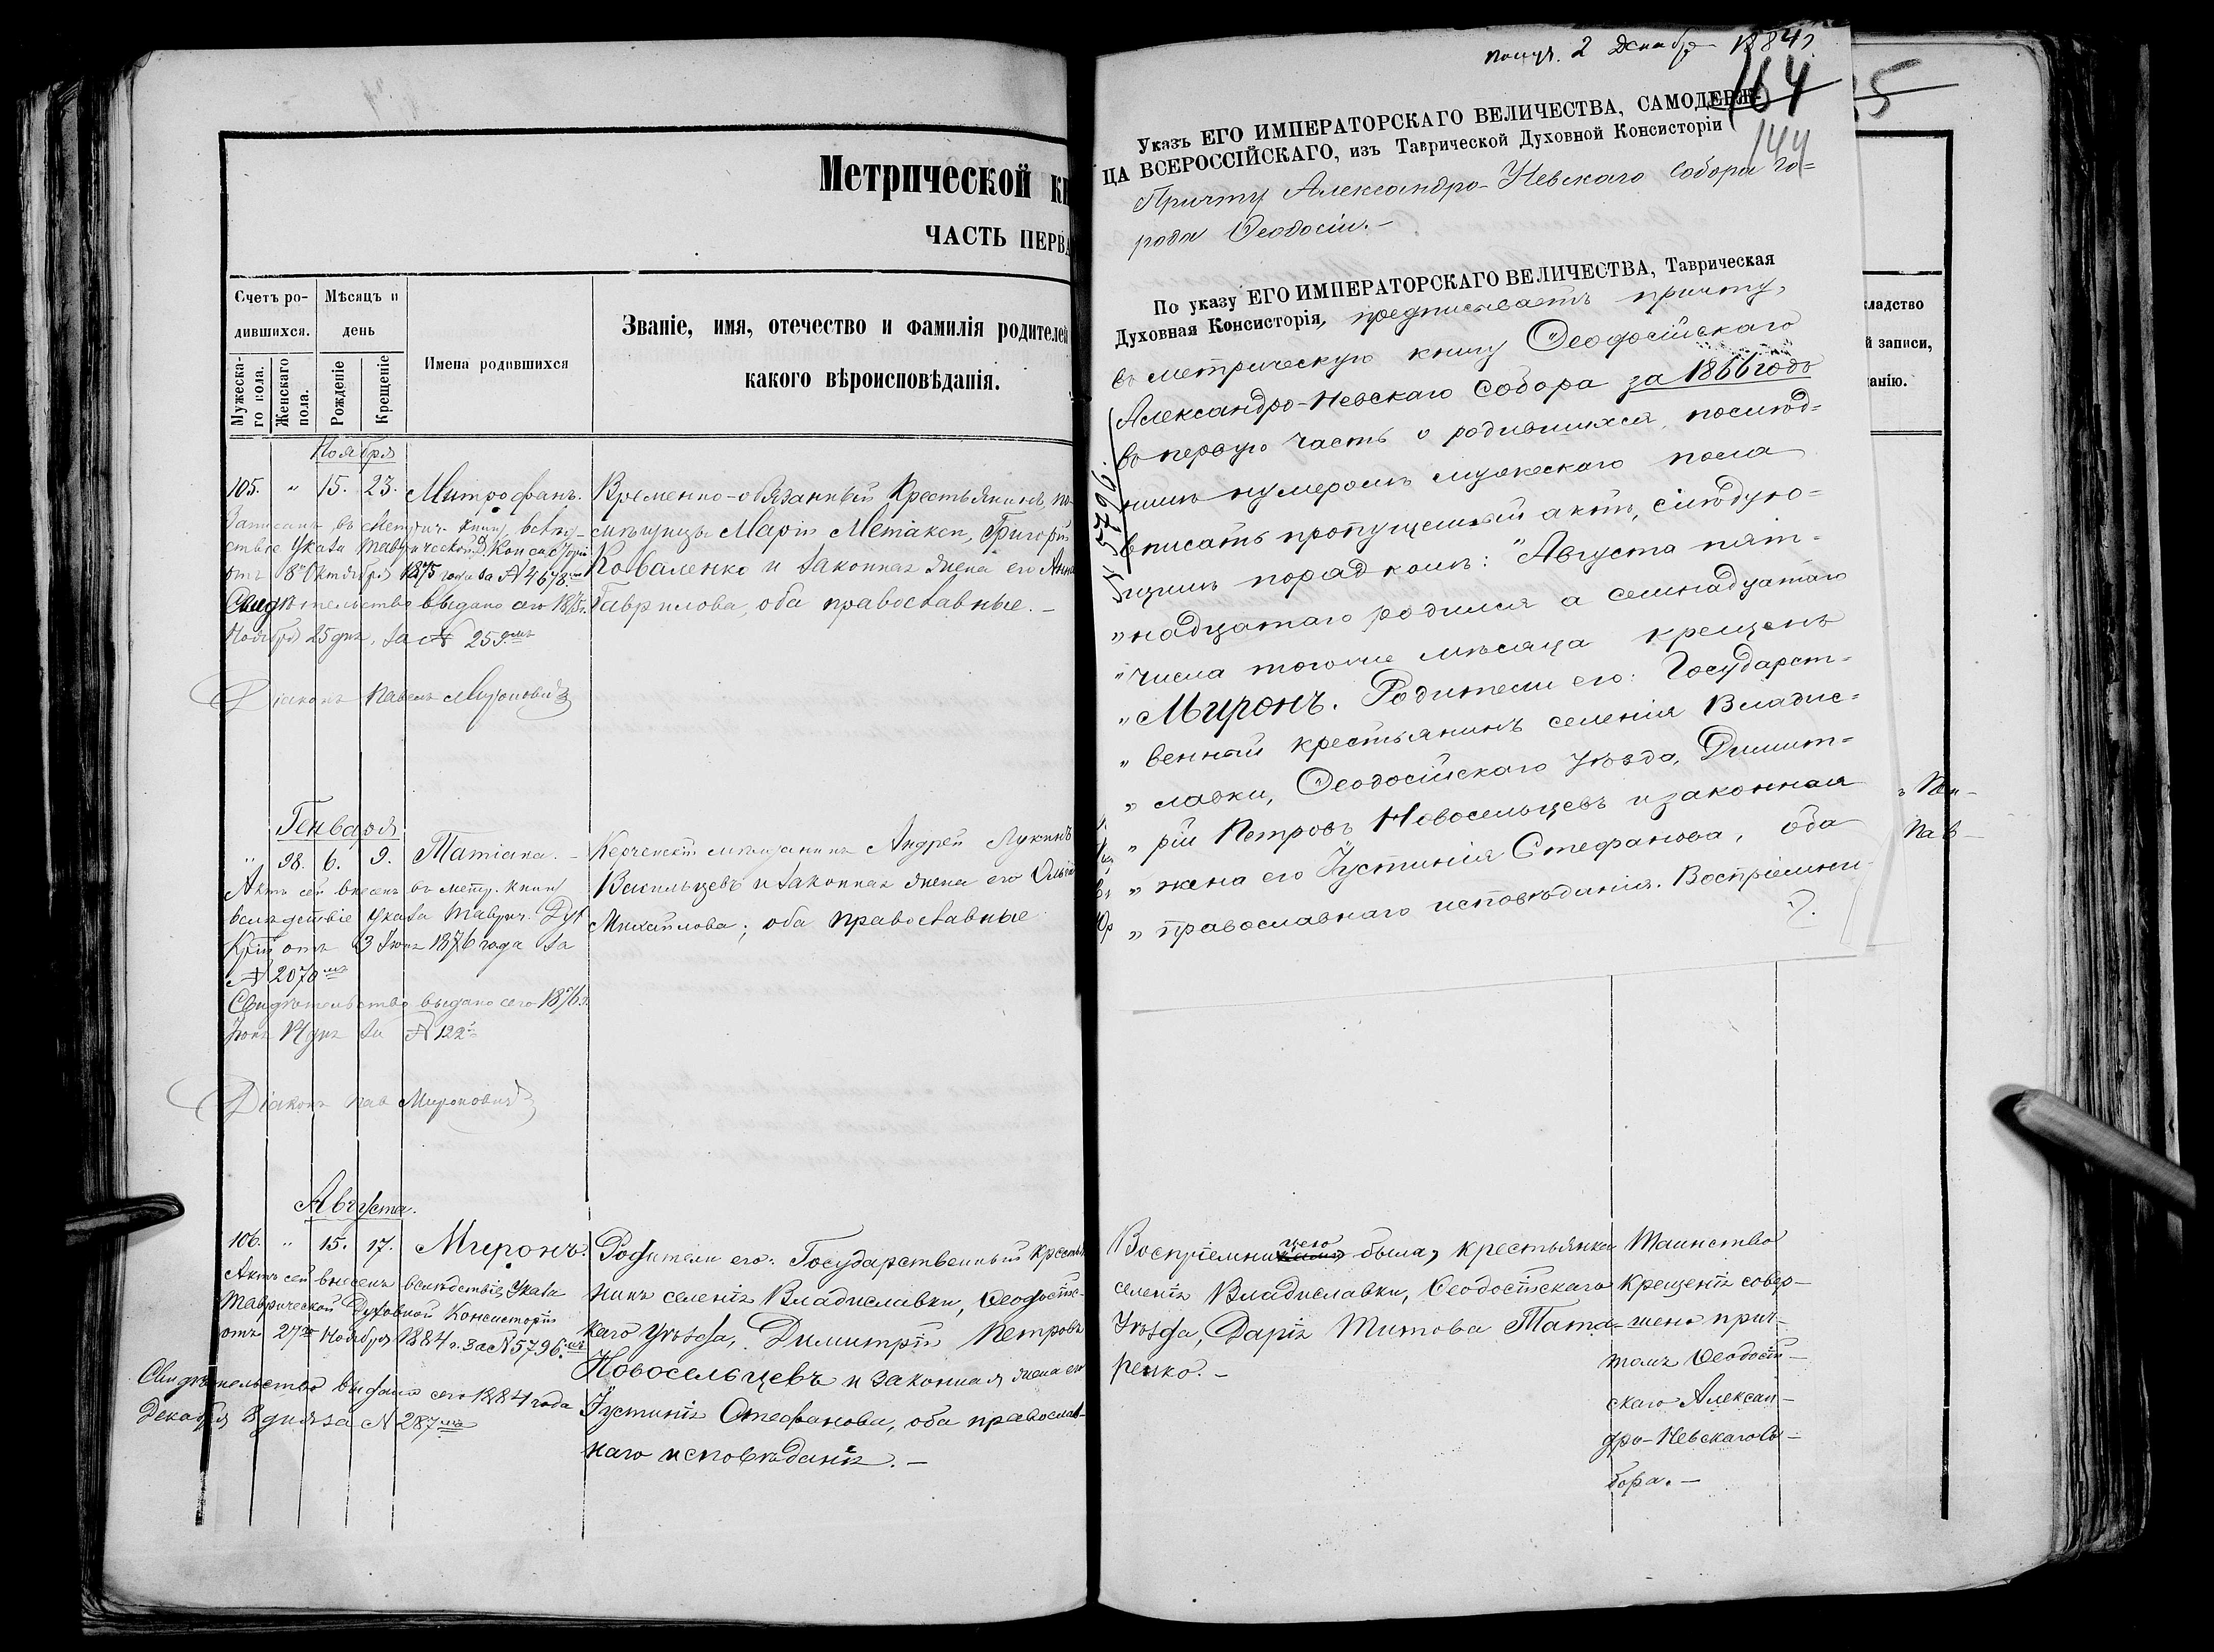 Метрической кн
ЧАСТЬ ПЕРВА
Счетъ ро-
дившихся.
Мѣсяцъ и
день
Мужеска-
го пола.
Женскаго
пола.
Рожденіе
Крещеніе
Имена родившихся
Званіе, имя, отечество и фамилія родителей
какого вѣроисповѣданія.
Ноября
105. " 15. 23. Митрофанъ.
Записанъ въ Метрич. книгу вслѣд-
ствіе Указа Таврической Д Консисторіи
отъ 8 Октября 1875 года за № 4678
Свидѣтельство выдано сего 1875 г.
Ноября 25 дня, за № 259
Діаконъ Павелъ Мироновичъ
Временно-обязанный Крестьянинъ, по-
мѣщицы Маріи Метакси, Григорій
Коваленко и законная жена его Анна
Гаврилова, оба православные. –
Генваря
" 98. 6. 9. Татіана. –
Актъ сей внесенъ въ метр. книгу
вслѣдствіе Указа Таврич. Дух
отъ 3 Іюня 1876 года за
№ 2070
Свидѣтельство выдано сего 1876 г.
за № 122
Діаконъ Пав Мироновичъ
Керченскій мѣщанинъ Андрей Лукинъ
Васильцевъ и законная жена его
Михайлова; оба православные
Августа.
106. " 15. 17. Миронъ.
Актъ сей внесенъ вслѣдствіе Указа
Таврической Духовной Консисторіи
отъ 27го Ноября 1884 г. за № 5796.
Свидѣтельство выдано сего 1884 года
Декабря 8 дня за № 287
Родители его: Государственный Крестья
нинъ селенія Владиславки, Ѳеодосійс-
каго Уѣзда, Димитрій Петровъ
Новосельцевъ и законная жена его
Іустинія Стефанова, оба православ-
наго исповѣданія. –
получ. 2 Декабря 1884 г.
164
144
5
Указъ ЕГО ИМПЕРАТОРСКАГО ВЕЛИЧЕСТВА, САМОДЕРЖ-
ЦА ВСЕРОССІЙСКАГО, изъ Таврической Духовной Консисторіи
Причту Александро-Невскаго Собора го-
рода Ѳеодосіи. –
По указу ЕГО ИМПЕРАТОРСКАГО ВЕЛИЧЕСТВА, Таврическая
Духовная Консисторія, предписываетъ причту,
въ метрическую книгу Ѳеодосійскаго
Александро-Невскаго Собора за 1866 годъ
въ первую часть о родившихся, послѣд-
нимъ нумеромъ мужескаго пола
вписать пропущенный актъ, слѣдую-
щимъ порядкомъ: "Августа пят-
"надцатаго родился а семнадцатаго
"числа тогоже мѣсяца крещенъ
"Миронъ. Родители его: Государст-
"венный крестьянинъ селенія Владис-
"лавки, Ѳеодосійскаго уѣзда, Димит-
"рій Петровъ Новосельцевъ и законная
"жена его Іустинія Стефанова, оба
"православнаго исповѣданія. Воспріемни-
№ 5796.
кладство
й записи,
анію.
Пав-
Воспріемницею была, крестьянка
селенія Владиславки, Ѳеодосійскаго
Уѣзда, Дарія Титова Тата-
ренко. –
Таинство
Крещенія совер-
шено прич-
томъ Ѳеодосій-
скаго Алексан-
дро-Невскаго Со-
бора. –